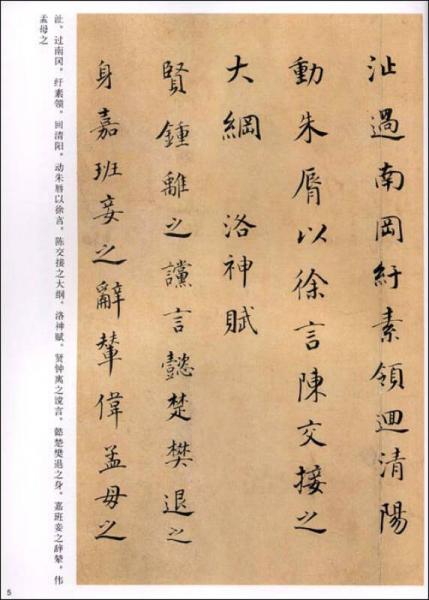 沚過南岡紆素領迴清陽
動朱脣以徐言陳交接之
大綱 洛神賦
賢鍾離之讜言懿楚樊退之
身嘉班妾之辭輦偉孟母之
沚。过南冈，纡素领，回清阳，动朱唇以徐言，陈交接之大纲。洛神赋。贤钟离之谠言，懿楚樊退之身，嘉班妾之辞辇，伟
孟母之
5